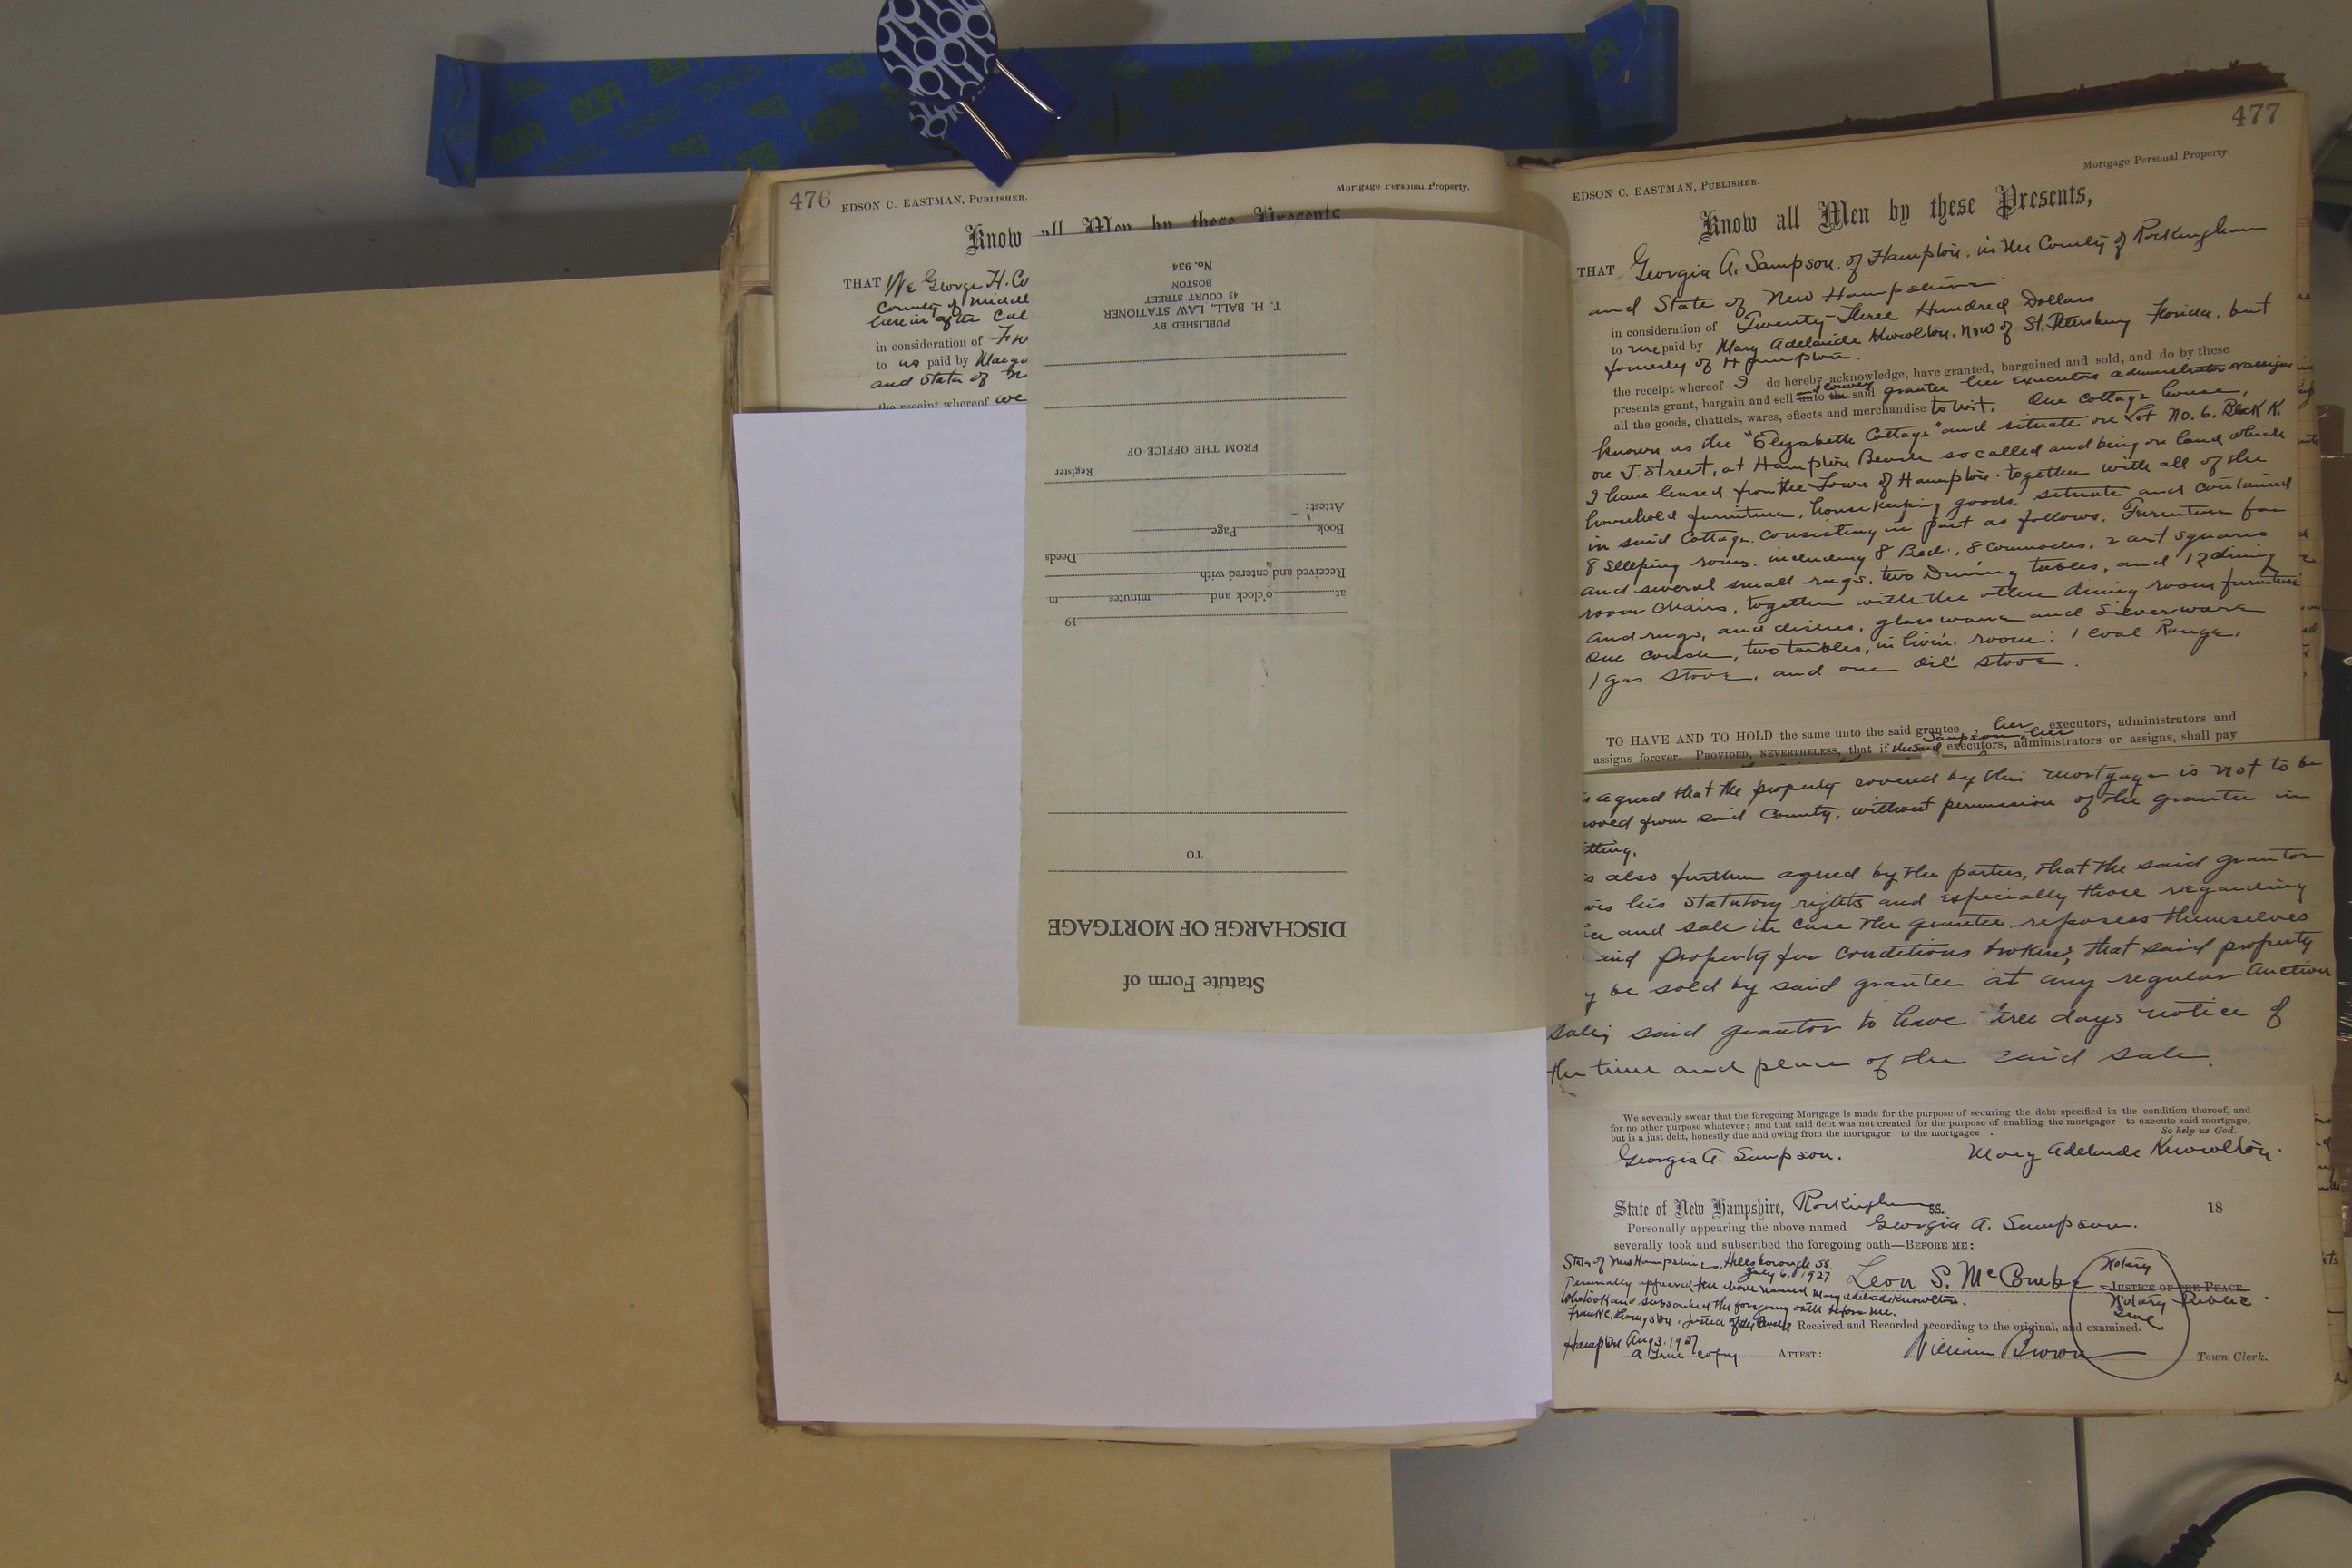 476
EDSON C. EASTMAN, PUBLISHER.
Mortgage Personal Property.
Know all Men by these Presents
THAT We George H. Co
County of Middl
herein after Cal
in consideration of
to us paid by Marga
and State of
the receipt whereof we
Statute Form of
DISCHARGE OF MORTGAGE
TO
19
at o'clock and minutes m
Received and entered with
Deeds
Book Page
Attest:
Register
FROM THE OFFICE OF
PUBLISHED BY
T. H. BALL, LAW STATIONER
43 COURT STREET
BOSTON
No. 934
477
EDSON C. EASTMAN, PUBLISHER.
Mortgage Personal Property.
Know all Men by these Presents,
THAT Georgia A. Sampson. of Hampton. in the County of Rockingham
and State of New Hampshire
in consideration of Twenty-Three Hundred Dollars
to me paid by Mary Adelaide Knowlton, now of St. Petersburg Florida. but
formerly of Hampton.
the receipt whereof I do hereby acknowledge, have granted, bargained and sold, and do by these
presents grant, bargain and sell convey unto the said grantee her executors administrators or assigns
all the goods, chattels, wares, effects and merchandise to wit. One Cottage house,
known as the "Elizabeth Cottage" and situate on Lot No. 6. Block K.
on J. Street, at Hampton Beach so called and being on land which
I have leased from the Town of Hampton. together with all of the
household furniture, housekeeping goods. situate and contained
in said Cottage. consisting in part as follows. Furniture for
8 sleeping rooms. including 8 Beds, 8 Commodes, 2 art squares
and several small rugs. two Dining tables, and 12 dining
room chairs, together with the other dining room furniture
and rugs, and dishes, glassware and silverware
One couch, two tables, in livin. room: 1 coal Range.
1 gas stove, and one oil stove.
TO HAVE AND TO HOLD the same unto the said grantee, her executors, administrators and
assigns forever. PROVIDED, NEVERTHELESS, that if the said Sampson, her executors, administrators or assigns, shall pay
s agreed that the property covered by this mortgage is not to be
oved from said County, without permission of the grantee in
itting.
s also further agreed by the parties, that the said grantor
ves his statutory rights and especially those regarding
ce and sale in case the grantee reposess themselves
said property for conditions broken; that said property
y be sold by said grantee at any regular auction
sale; said grantor to have tree days notice of
the time and place of the said sale.
We severally swear that the foregoing Mortgage is made for the purpose of securing the debt specified in the condition thereof, and
for no other purpose whatever; and that said debt was not created for the purpose of enabling the mortgagor to execute said mortgage,
but is a just debt, honestly due and owing from the mortgagor to the mortgagee.
So help us God.
Georgia A. Sampson. Mary Adelaide Knowlton.
State of New Hampshire, Rockingham ss. 18
Personally appearing the above named Georgia A. Sampson.
severally took and subscribed the foregoing oath—BEFORE ME:
State of New Hampshire. Hillsborough ss.
July 6. 1927
Personally appeared the above named Mary Adelaide Knowlton.
who took and subscribed the foregoing oath before me.
Frank E. Livingston, Justice of the Peace
Leon S. McCombe
Notary
JUSTICE OF THE PEACE.
Notary Public
Seal
Received and Recorded according to the original, and examined.
Hampton Aug 3. 1927
A true copy
ATTEST: William Brown Town Clerk.